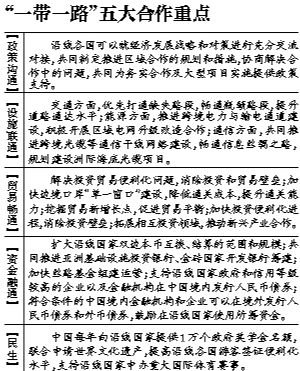 “一带一路”五大合作重点
【政策沟通】
沿线各国可以就经济发展战略和对策进行充分交流
对接，共同制定推进区域合作的规划和措施，协商解决合
作中的问题，共同为务实合作及大型项目实施提供政策
支持。
【设施联通】
交通方面，优先打通缺失路段，畅通瓶颈路段，提升
道路通达水平；能源方面，推进跨境电力与输电通道建
设，积极开展区域电网升级改造合作；通信方面，共同推
进跨境光缆等通信干线网络建设，畅通信息丝绸之路，
规划建设洲际海底光缆项目。
【贸易畅通】
解决投资贸易便利化问题，消除投资和贸易壁垒；加
快边境口岸“单一窗口”建设，降低通关成本，提升通关能
力；挖掘贸易新增长点，促进贸易平衡；加快投资便利化进
程，消除投资壁垒；拓展相互投资领域，推动新兴产业合作。
【资金融通】
扩大沿线国家双边本币互换、结算的范围和规模；共
同推进亚洲基础设施投资银行、金砖国家开发银行筹建；
加快丝路基金组建运营；支持沿线国家政府和信用等级
较高的企业以及金融机构在中国境内发行人民币债券；
符合条件的中国境内金融机构和企业可以在境外发行人
民币债券和外币债券，鼓励在沿线国家使用所筹资金。
【民生】
中国每年向沿线国家提供1万个政府奖学金名额，
联合申请世界文化遗产，提高沿线各国游客签证便利化
水平，支持沿线国家申办重大国际体育赛事。